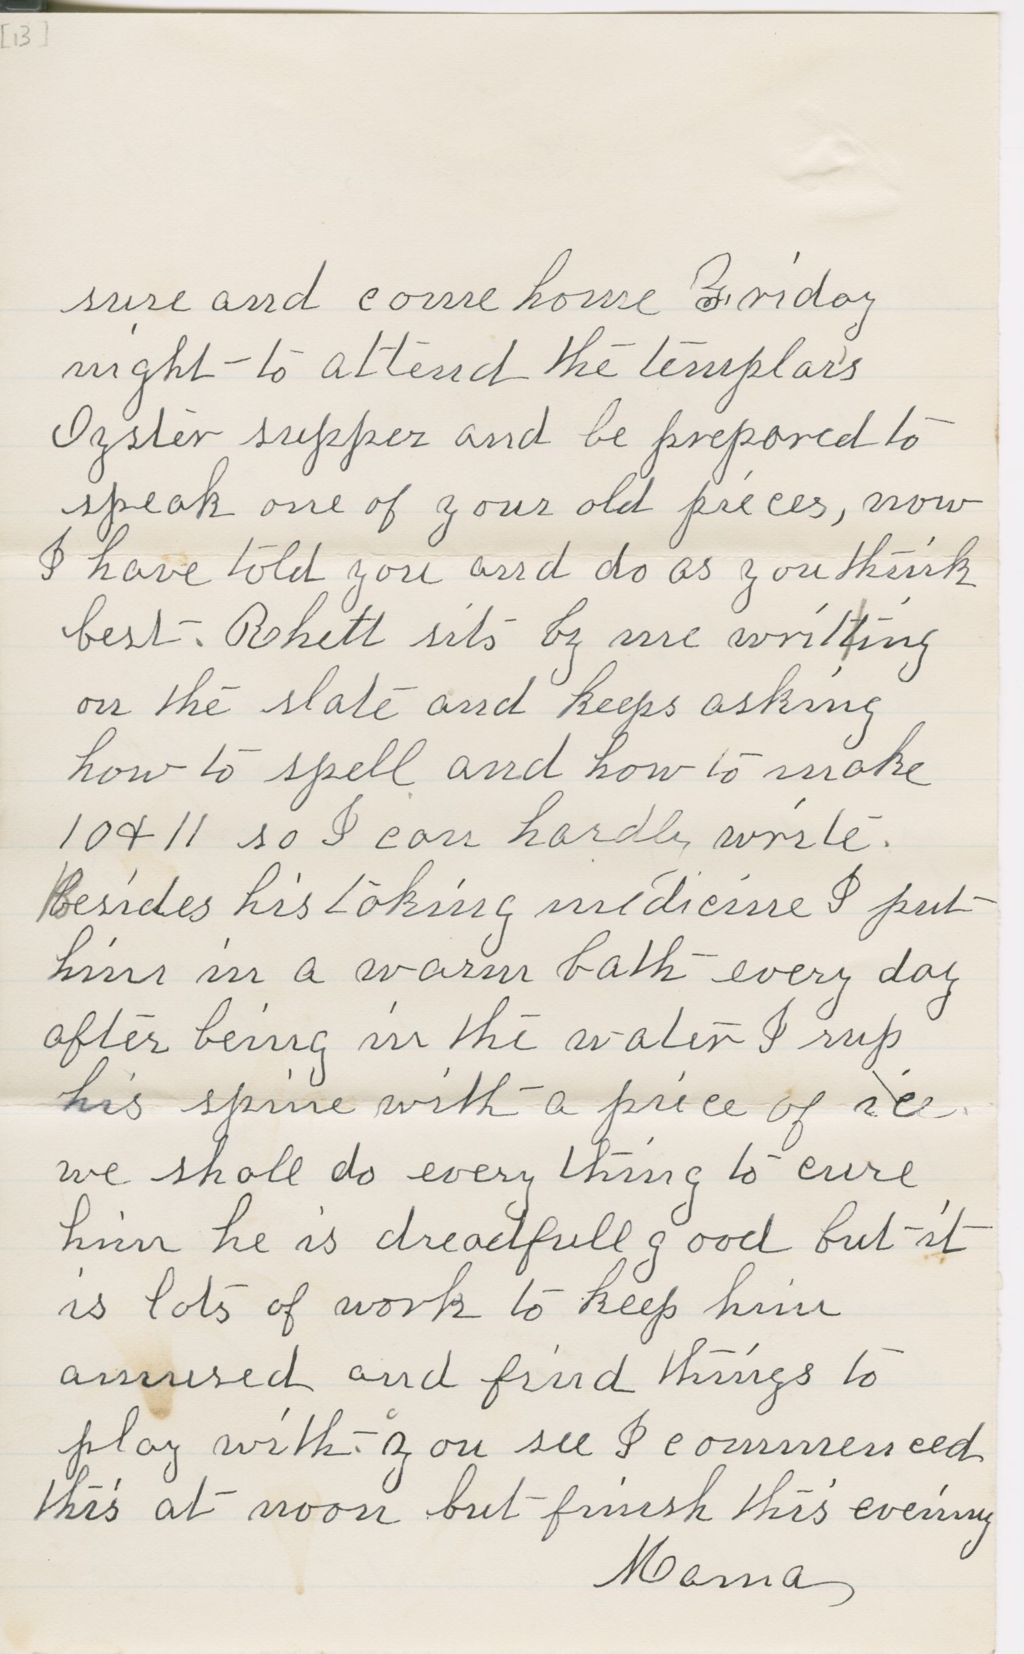 [13]
sure and come home Friday
night to attend the templars
Oyster supper and be prepared to
speak one of your old pieces, now
I have told you and do as you think
best. Rhett sits by me writting
on the slate and keeps asking
how to spell and how to make
10 & 11 so I can hardly write.
Besides his taking medicine I put
him in a warm bath every day
after being in the water I rup
his spine with a piece of ice.
we shall do every thing to cure
him he is dreadfull good but it
is lots of work to keep him
amused and find things to
play with. you see I commenced
this at noon but finish this evening
Mama